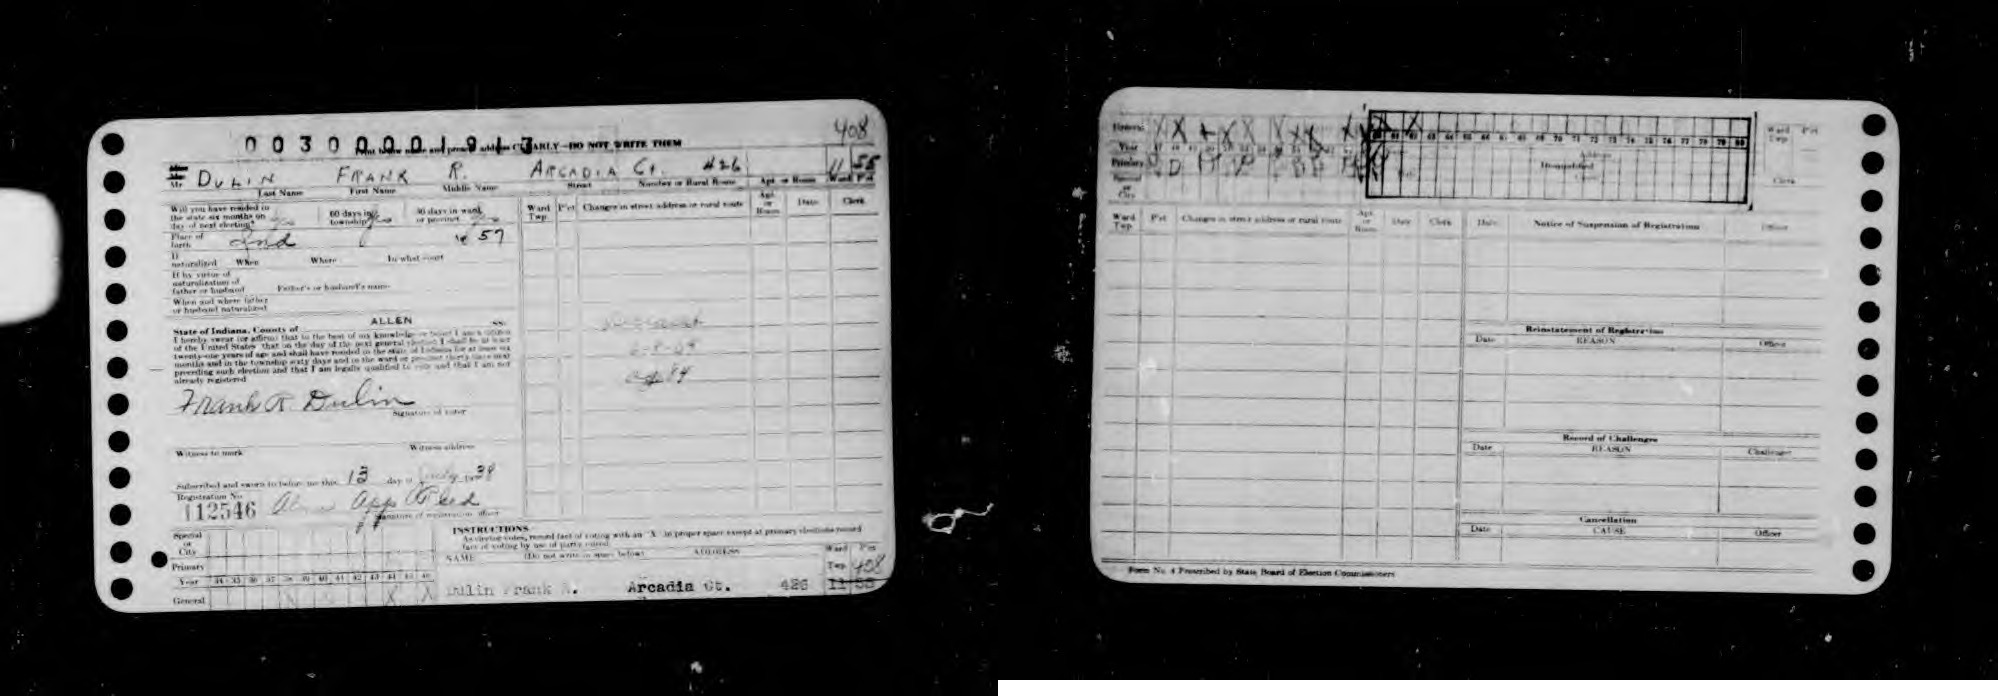 408
00300001913
Print below name and present address CLEARLY—DO NOT WRITE THEM
Mr. DULIN FRANK R. ARCADIA Ct. 426 11 55
Last Name First Name Middle Name Street Number or Rural Route Apt. or Room Ward Pct
Will you have resided in the state six months on day of next election? 60 days in township 30 days in ward or precinct
Place of birth Ind 57
If naturalized When Where In what court
If by virtue of naturalization of father or husband Father's or husband's name
When and where father or husband naturalized
State of Indiana, County of ALLEN ss:
I hereby swear (or affirm) that to the best of my knowledge or belief I am a citizen
of the United States that on the day of the next general election I shall be at least
twenty-one years of age and shall have resided in the state of Indiana for at least six
months and in the township sixty days and in the ward or precinct thirty days next
preceding such election and that I am legally qualified to vote and that I am not
already registered
Frank R. Dulin
Signature of voter
Witness to mark Witness address
Subscribed and sworn to before me this 13 day of July 1938
Registration No.
112546
Signature of registration officer
Ward Twp. Pct Changes in street address or rural route Apt. or Room Date Clerk
INSTRUCTIONS
As elector votes, record fact of voting with an "X" in proper space except at primary elections record
fact of voting by use of party initial
NAME (Do not write in space below) ADDRESS Ward Twp. Pct
Special or City
Primary
Year 34 35 36 37 38 39 40 41 42 43 44 45 46
General X X
Dulin Frank R. Arcadia Ct. 426 11 55
408
General
Year
Primary
Special or City
60 61 62 63 64 65 66 67 68 69 70 71 72 73 74 75 76 77 78 79 80
Ward Twp. Pct
Clerk
Ward Twp. Pct Changes in street address or rural route Apt. or Room Date Clerk
Date Notice of Suspension of Registration Officer
Reinstatement of Registration
Date REASON Officer
Record of Challenges
Date REASON Challenger
Cancellation
Date CAUSE Officer
Form No. 4 Prescribed by State Board of Election Commissioners